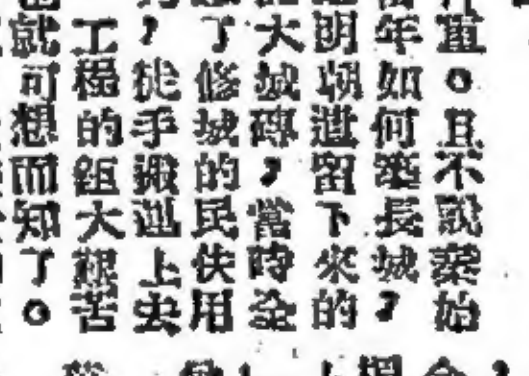 直。且不說秦始
年如何築長城，
明朝遺留下來的
大城磚，當時全
了修城的民伕用
，徒手搬運上去
工程的鉅大艱苦
就可想而知了。